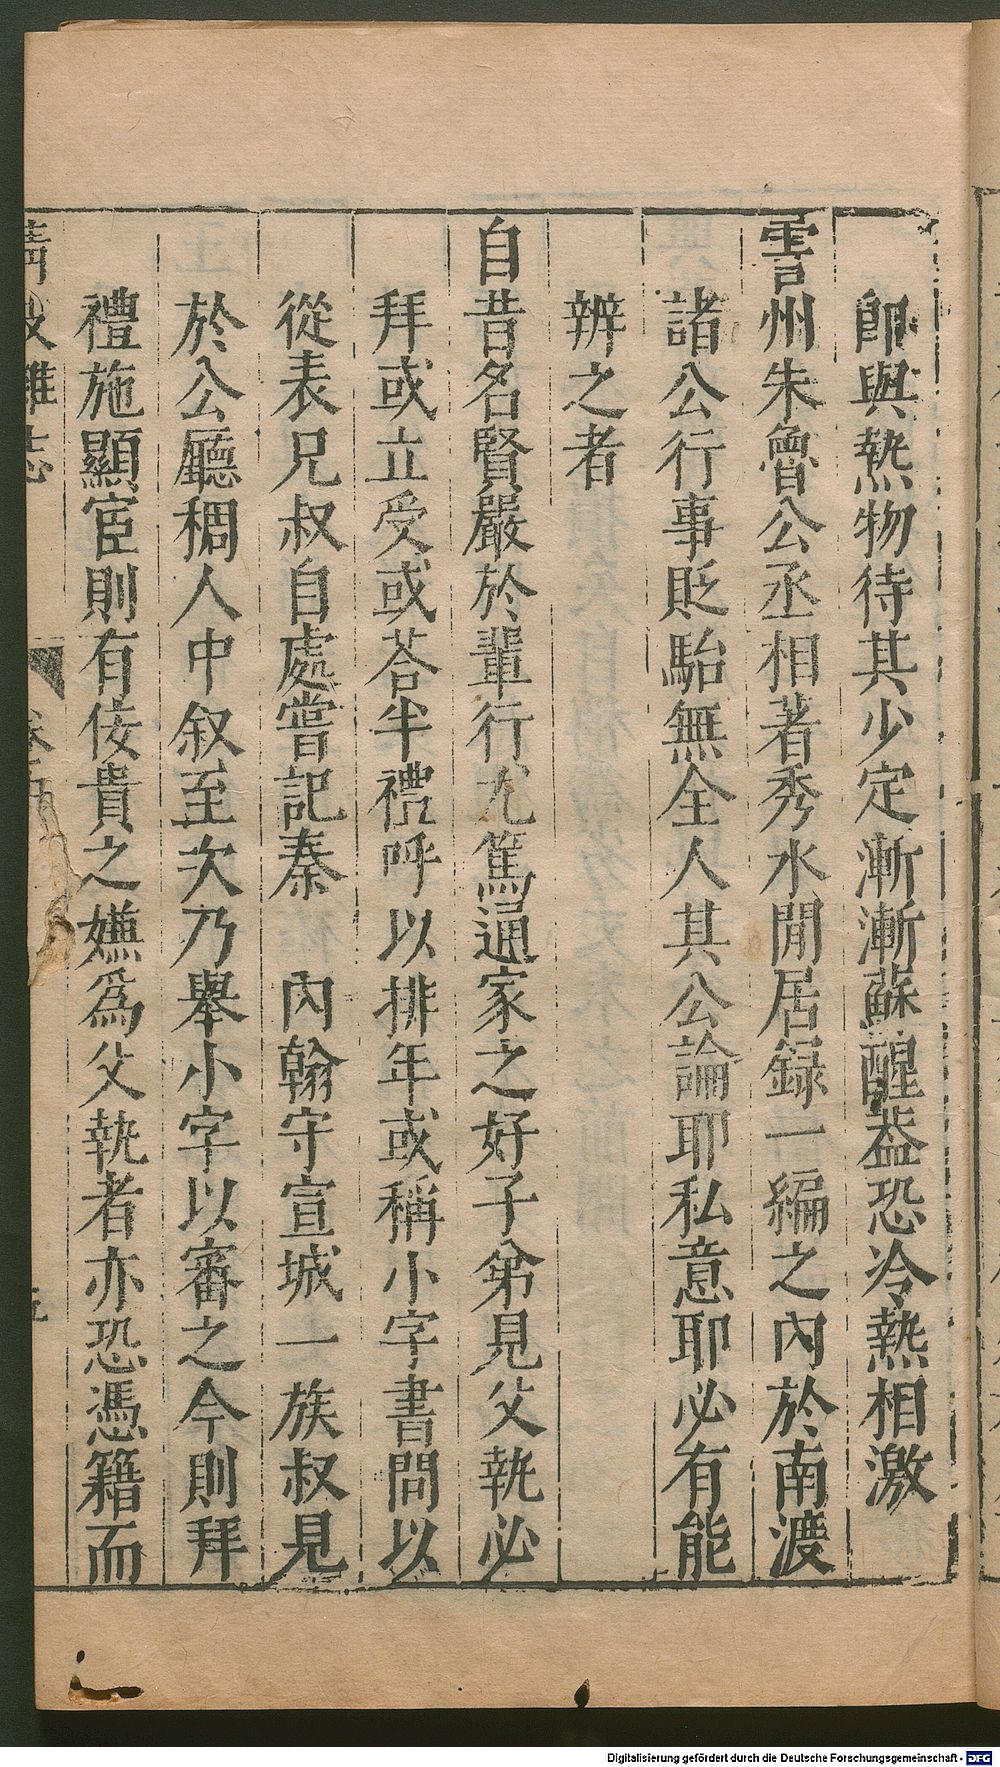 即與熱物待其少定漸漸蘇醒葢恐冷熱相激
霅州朱魯公丞相著秀水閒居録一編之內於南渡
諸公行事貶駘無全人其公論耶私意耶必有能
辨之者
自昔名賢嚴於輩行尤篤通家之好子弟見父執必
拜或立受或荅半禮呼以排年或稱小字書問以
從表兄叔自處嘗記秦　內翰守宣城一族叔見
於公廳稠人中叙至次乃舉小字以審之今則拜
禮施顯宦則有佞貴之嫌爲父執者亦恐憑籍而
清波雜志
卷五
五
Digitalisierung gefördert durch die Deutsche Forschungsgemeinschaft - DFG